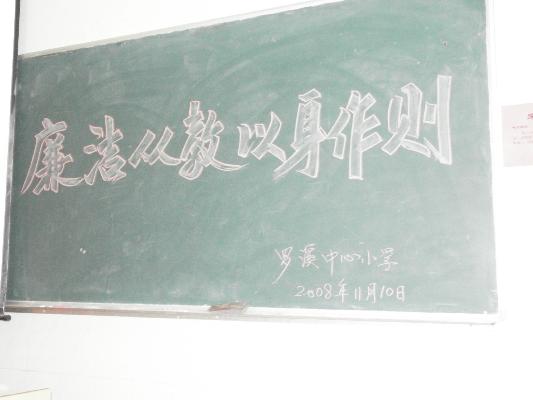 廉洁从教以身作则
罗溪中心小学
2008年11月10日